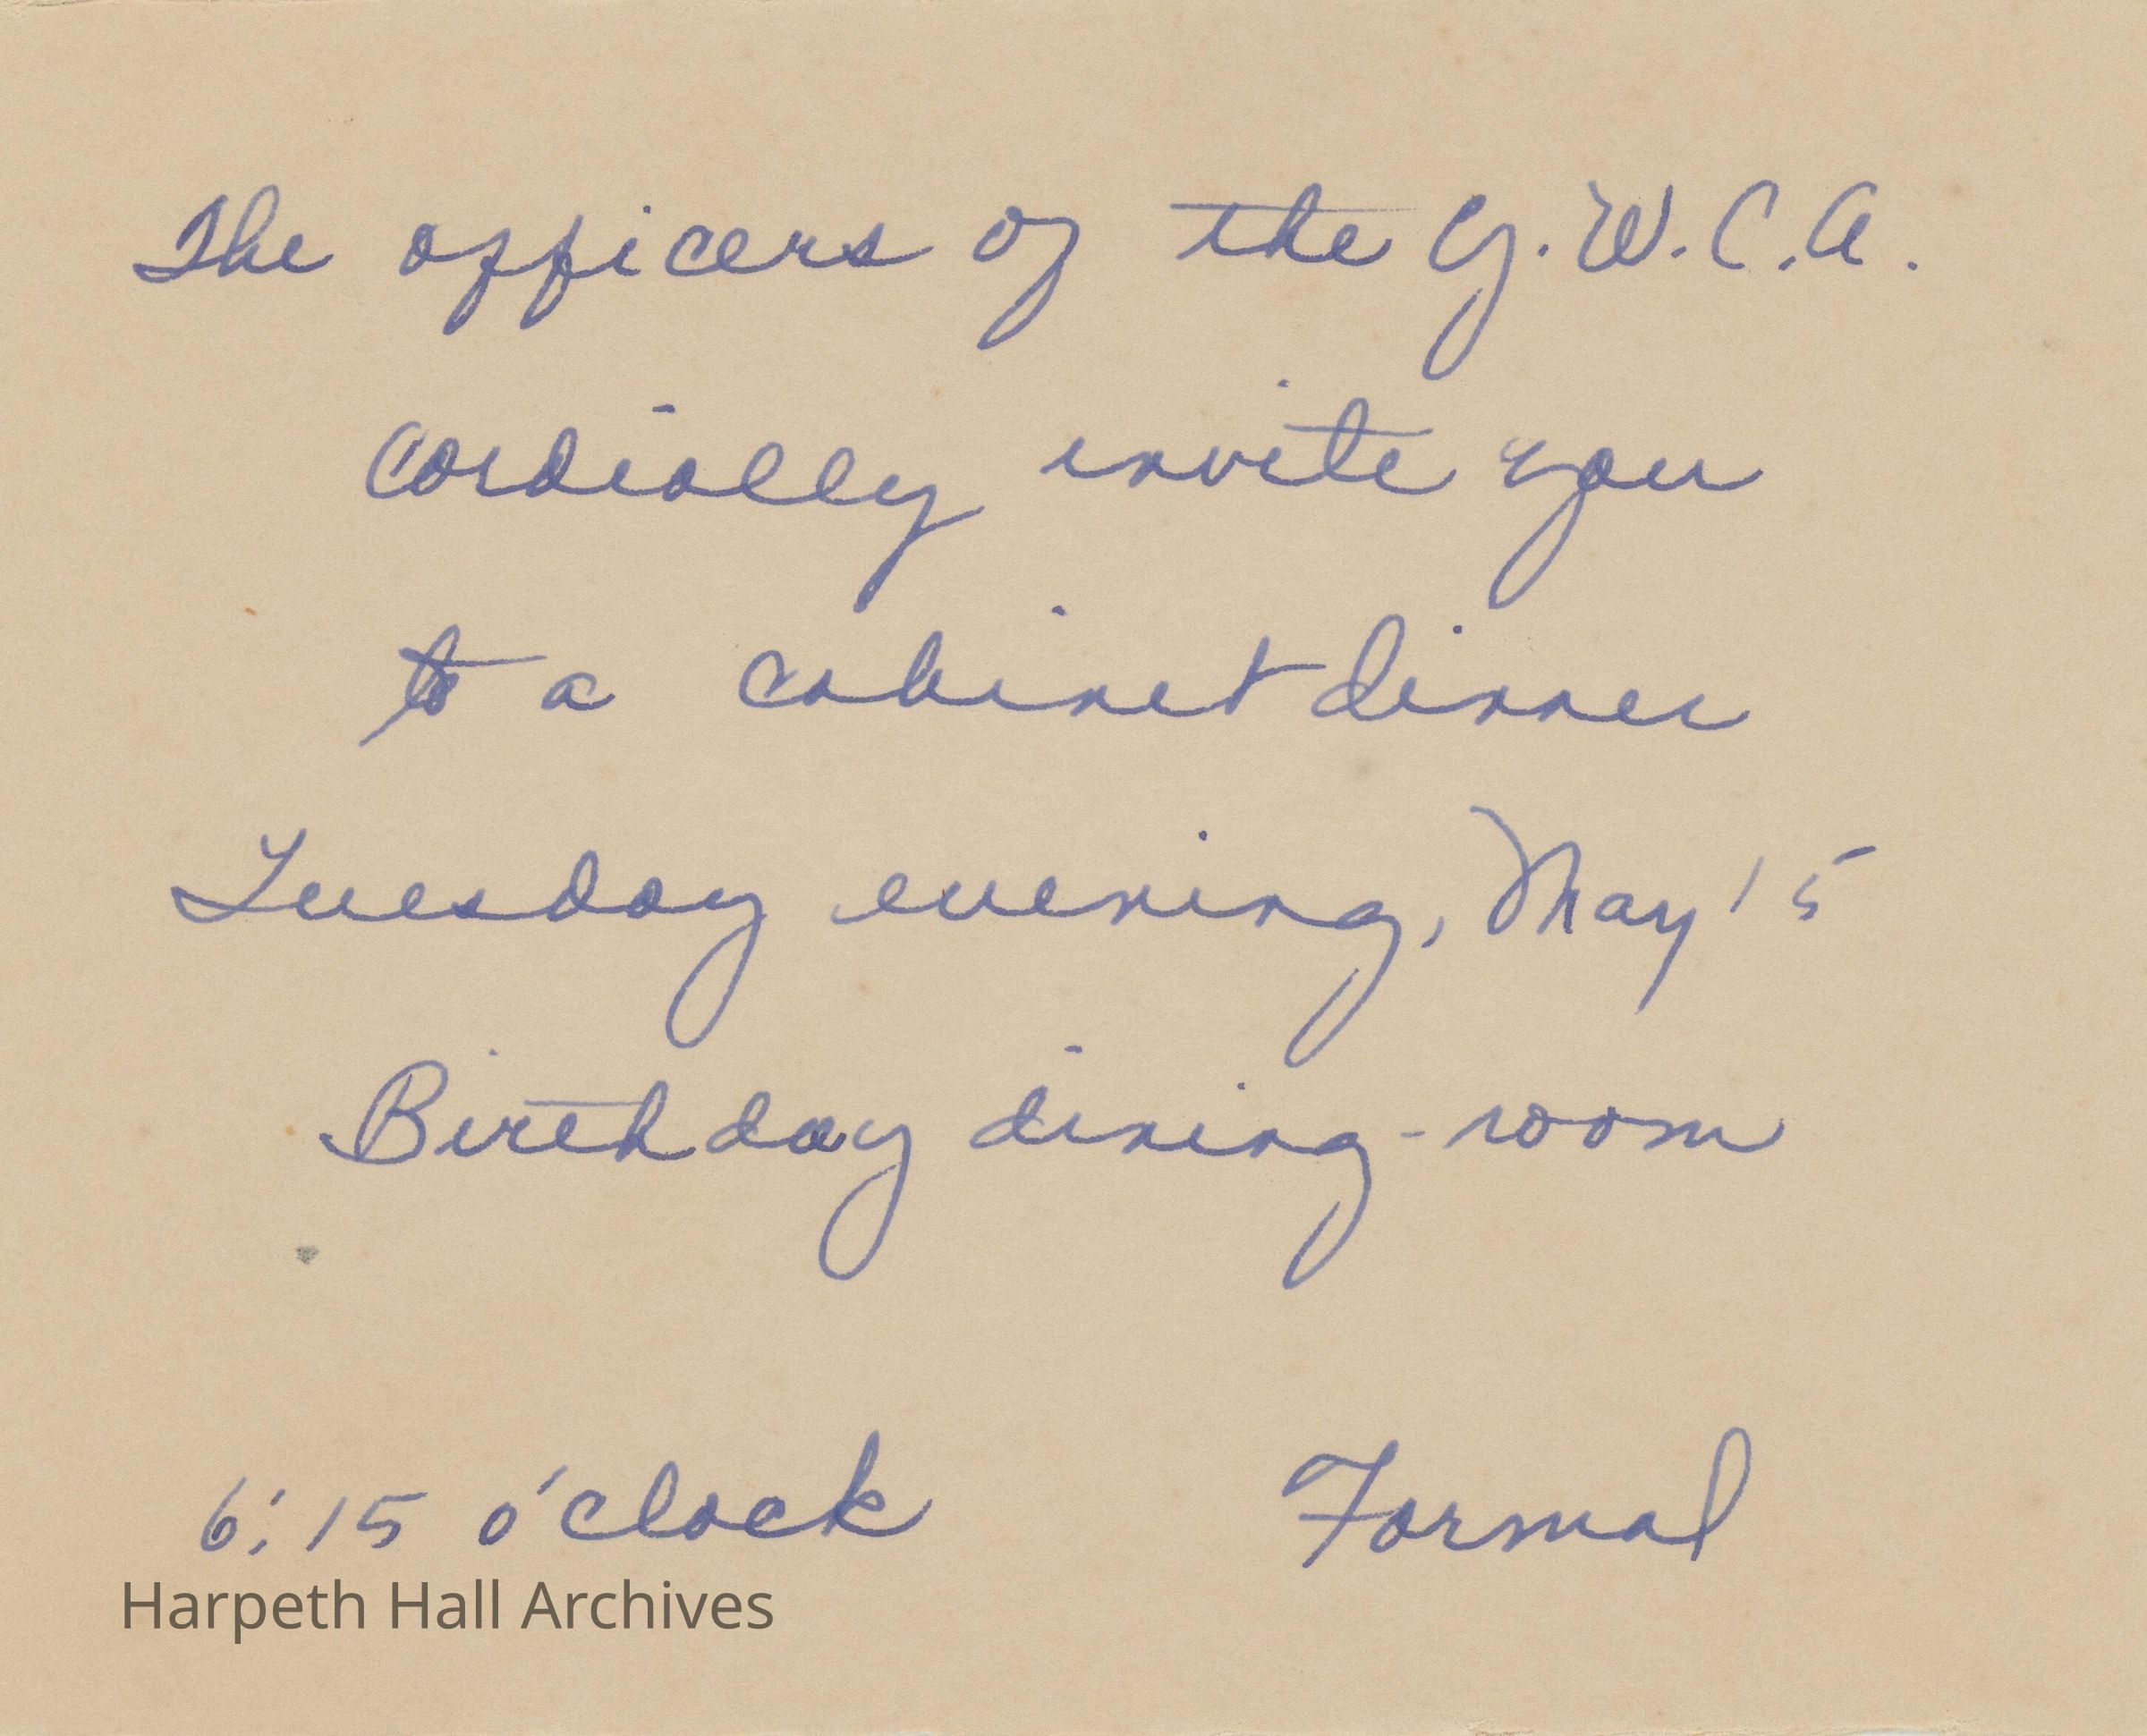 The officers of the Y.W.C.A.
cordially invite you
to a cabinet dinner
Tuesday evening, May 15
Birthday dining-room
6:15 o'clock Formal
Harpeth Hall Archives